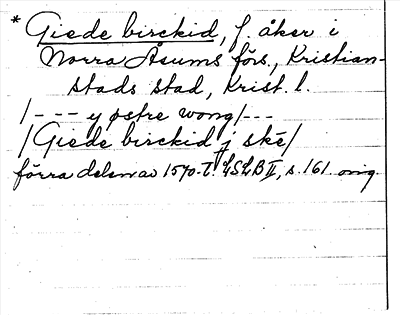 * Giede birckid, f. åker i
Norra Åsums förs., Kristian-
stads stad, Krist. l.
/--- y østre wong/---
/Giede birckid j skē/
förra delen av 1570-t. LSLB II, s. 161. orig.